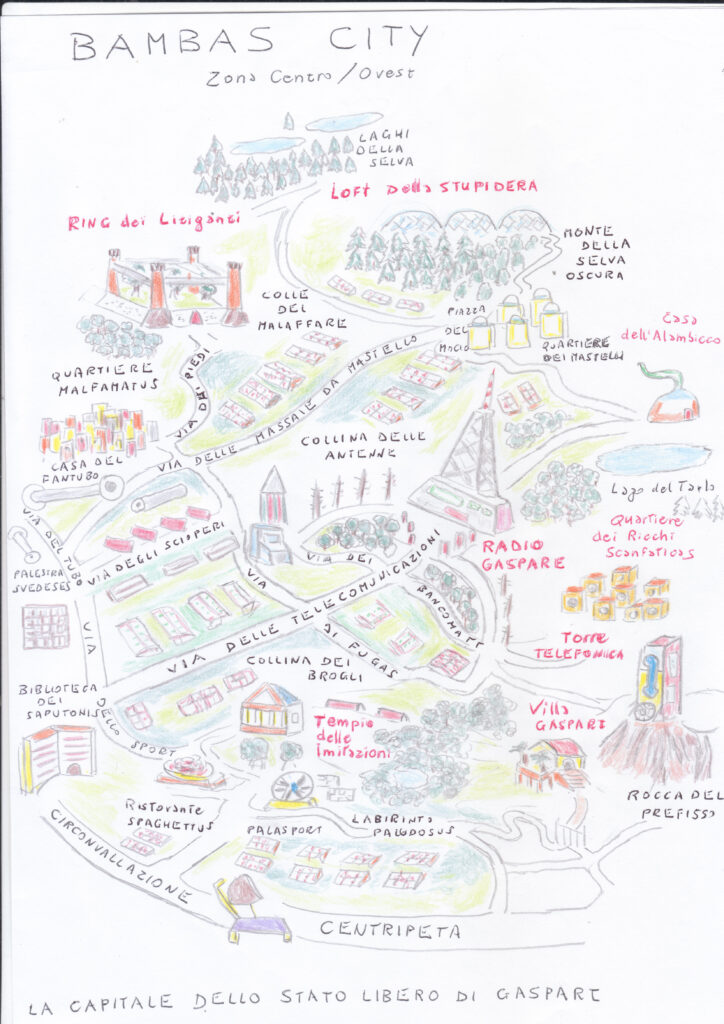 BAMBAS CITY
Zona Centro/Ovest
LAGHI
DELLA
SELVA
LOFT Della STUPIDERA
RING dei Litiganti
MONTE
DELLA
SELVA
OSCURA
COLLE
DEL
MALAFFARE
PIAZZA
DEL
MOCIO
QUARTIERE
DEI MASTELLI
Casa
dell'Alambicco
QUARTIERE
MALFAMATUS
VIA DEI PIEDI
VIA DELLE MASSAIE DA MASTELLO
COLLINA DELLE
ANTENNE
CASA DEL
FANTUBO
Lago del Tarlo
VIA DEL TUBO
VIA DEGLI SCIOPERI
Quartiere
dei Ricchi
Scanfaticas
RADIO
GASPARE
PALESTRA
SVEDESES
VIA DEI
BANCOMATT
VIA
DI FUGAS
VIA DELLE TELECOMUNICAZIONI
Torre
TELEFONICA
COLLINA DEI
BROGLI
BIBLIOTECA
DEI
SAPUTONIS
VIA
DELLO SPORT
Tempio
delle
Imitazioni
Villa
GASPART
ROCCA DEL
PREFISSO
Ristorante
SPAGHETTUS
PALASPORT
LABIRINTO
PALUDOSUS
CIRCONVALLAZIONE
CENTRIPETA
LA CAPITALE DELLO STATO LIBERO DI GASPART